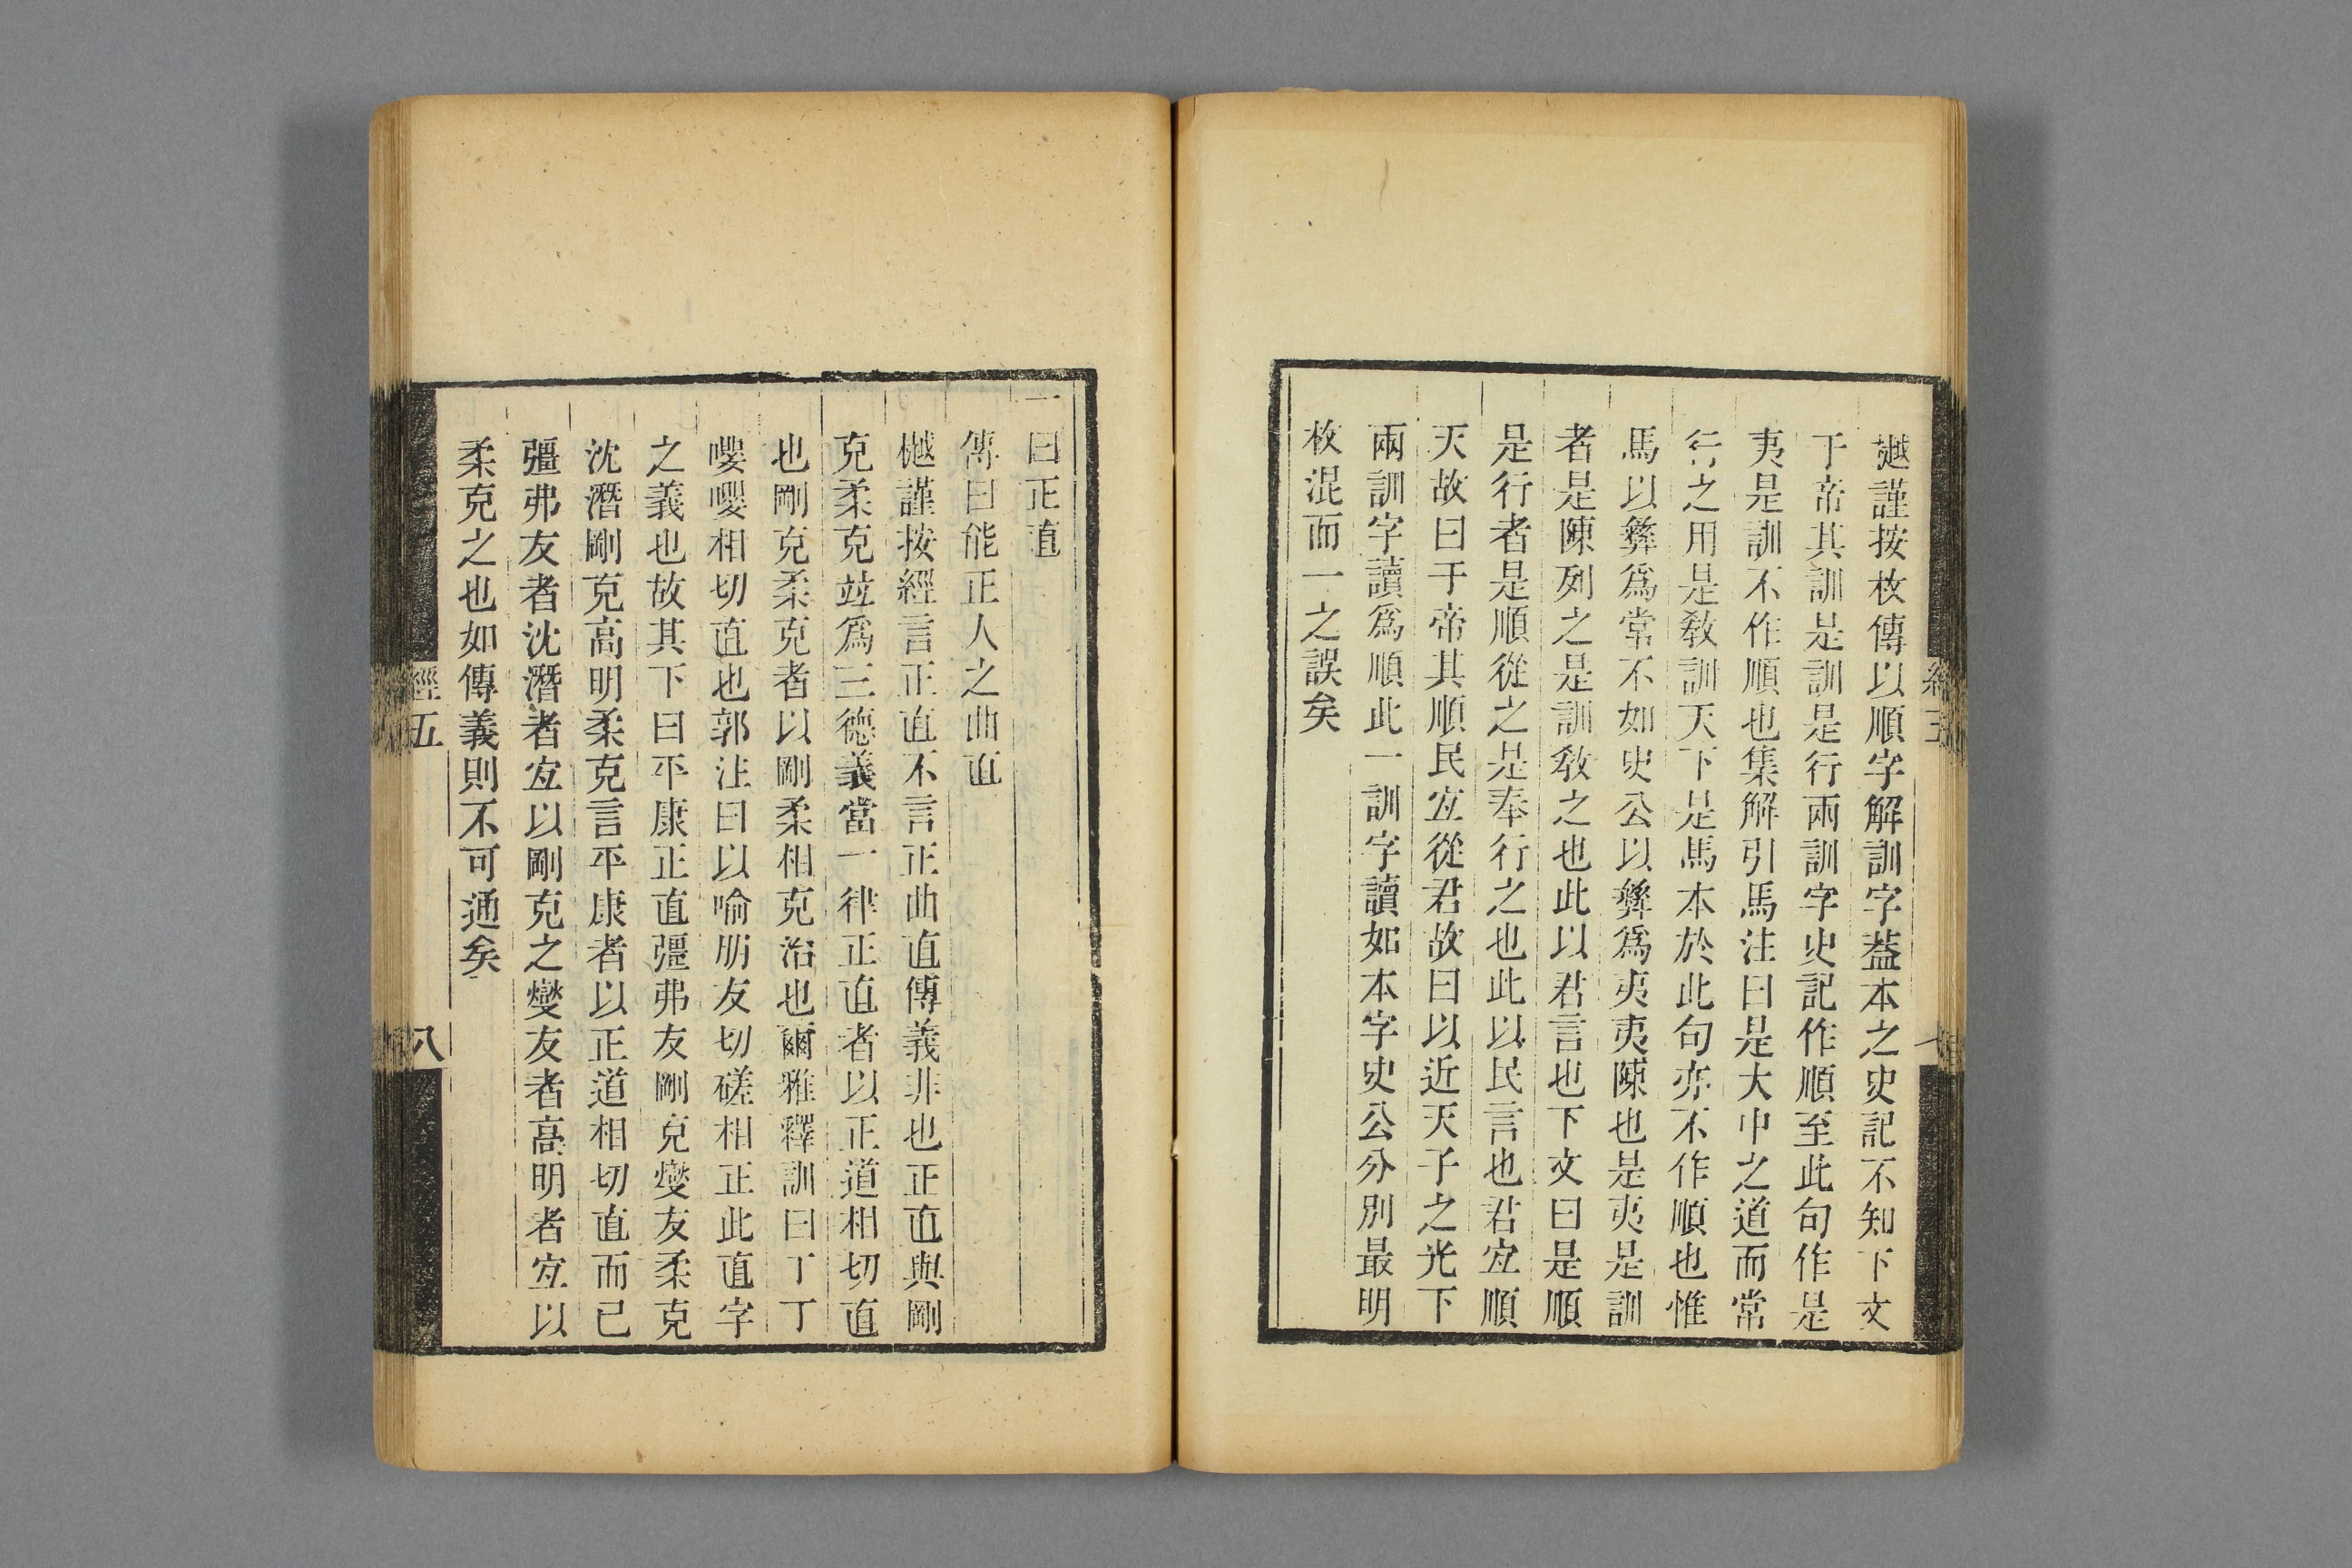 樾謹按枚傳以順字解訓字葢本之史記不知下文
于帝其訓是訓是行兩訓字史記作順至此句作是
夷是訓不作順也集解引馬注曰是大中之道而常
行之用是敎訓天下是馬本於此句亦不作順也惟
馬以彝爲常不如史公以彝爲夷夷陳也是夷是訓
者是陳列之是訓敎之也此以君言也下文曰是順
是行者是順從之是奉行之也此以民言也君宐順
天故曰于帝其順民宐從君故曰以近天子之光下
兩訓字讀爲順此一訓字讀如本字史公分別最明
枚混而一之誤矣
一曰正直
傳曰能正人之曲直
樾謹按經言正直不言正曲直傳義非也正直與剛
克柔克竝爲三德義當一律正直者以正道相切直
也剛克柔克者以剛柔相克治也爾雅釋訓曰丁丁
嚶嚶相切直也郭注曰以喻朋友切磋相正此直字
之義也故其下曰平康正直彊弗友剛克燮友柔克
沈潛剛克高明柔克言平康者以正道相切直而已
彊弗友者沈潛者宐以剛克之燮友者高明者宐以
柔克之也如傳義則不可通矣
經五
八